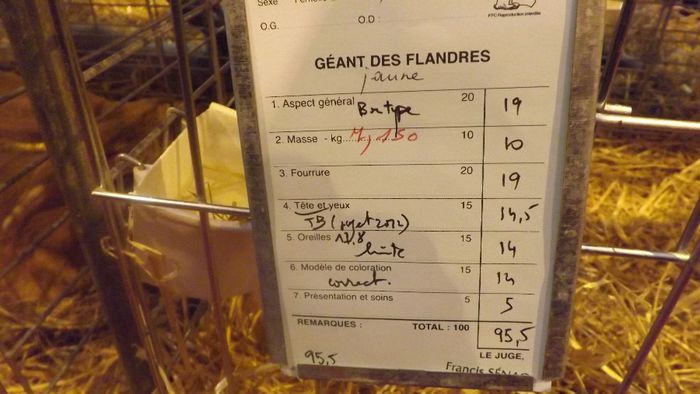 Sexe
O.G. O.D :
FFC Reproduction interdite
GÉANT DES FLANDRES
jaune
1. Aspect général Bn type 20 19
2. Masse - kg..... 7,150 10 10
3. Fourrure 20 19
4. Tête et yeux 15 14,5
TB (sujet 2012)
5. Oreilles 15 14
limite
6. Modèle de coloration 15 14
correct.
7. Présentation et soins 5 5
REMARQUES : TOTAL : 100 95,5
LE JUGE,
95,5
Francis